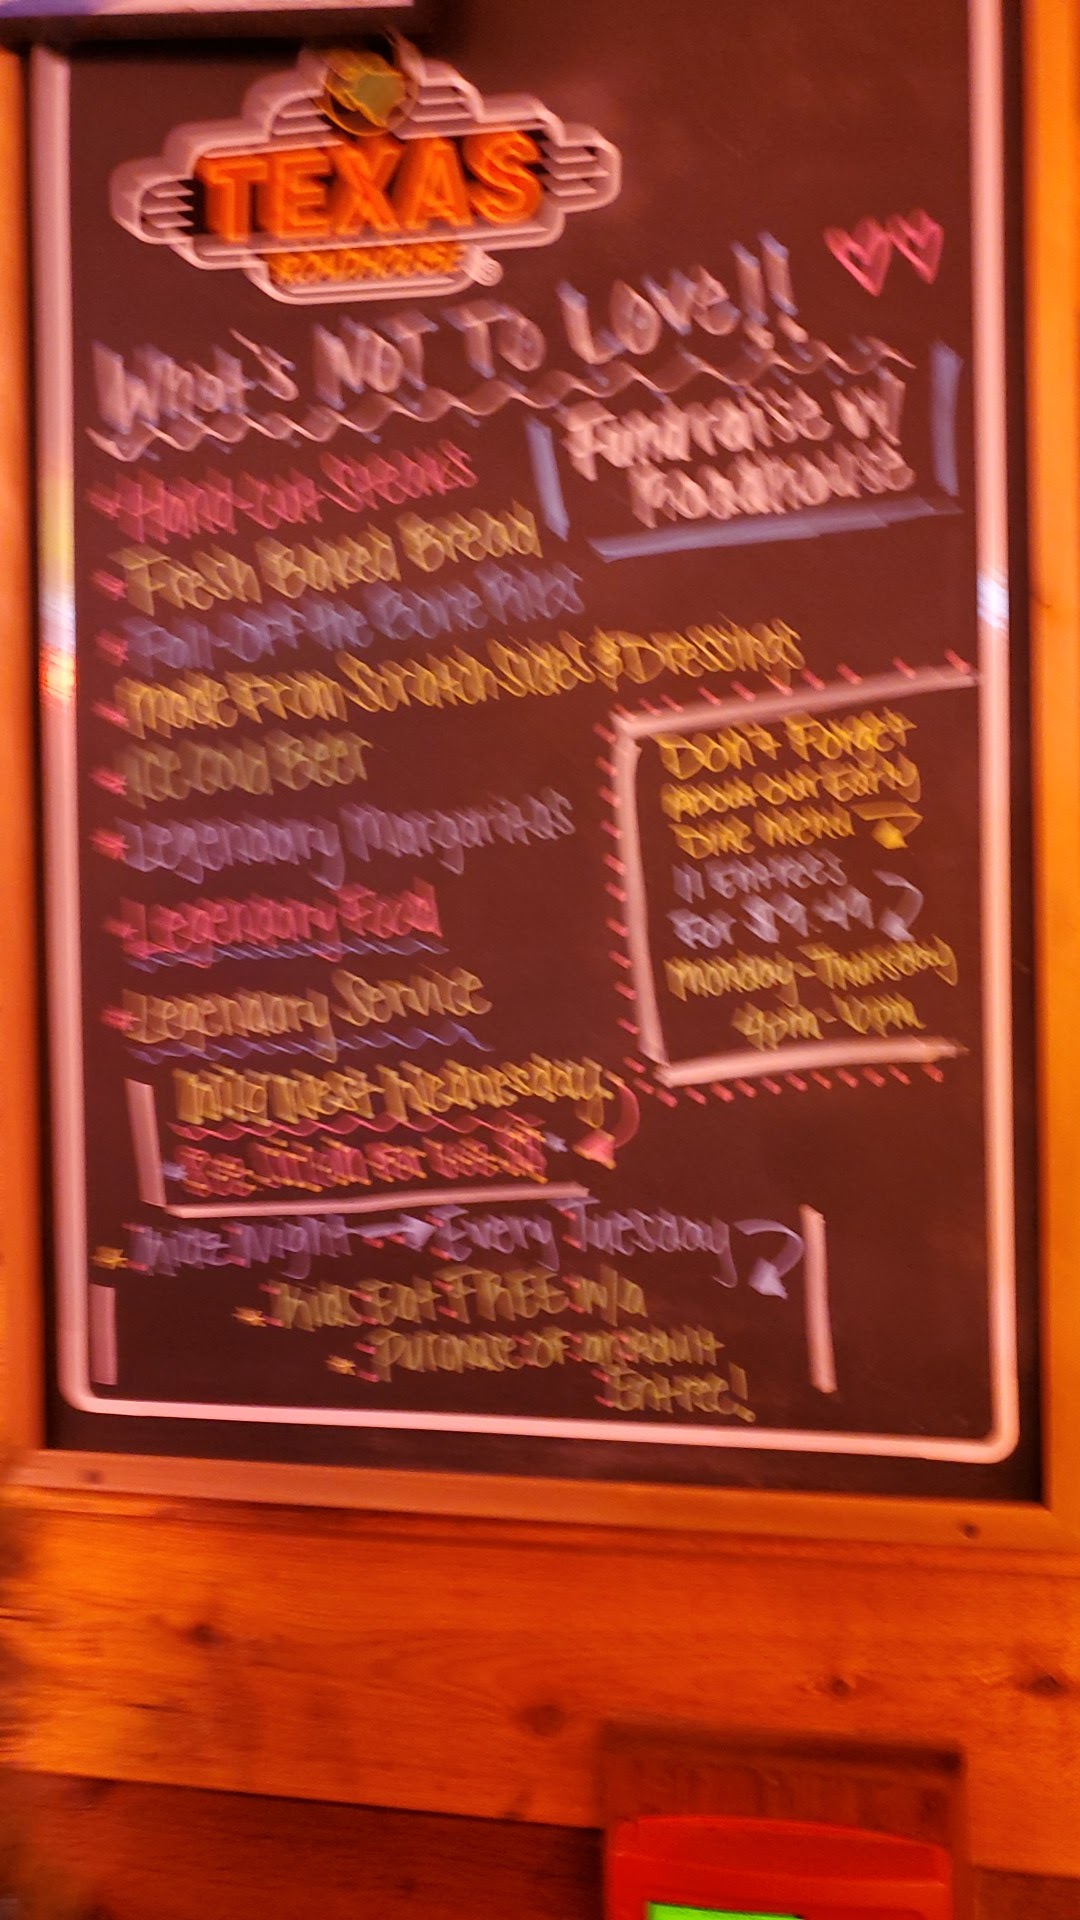 TEXAS
ROADHOUSE ®
What's NOT TO LOVE!!
Fundraise w/
Roadhouse
*Hand-cut Steaks
*Fresh Baked Bread
*Fall-Off the Bone Ribs
*made From Scratch Sides & Dressings
*ice cold Beer
*Legendary Margaritas
*Legendary Food
*Legendary Service
Don't Forget
About our Early
Dine Menu
11 Entrees
For $9.49
Monday-Thursday
4pm-6pm
Wild West Wednesday
For
*Kidz Night → Every Tuesday
*Kids Eat FREE w/a
*Purchase of an Adult
Entree!